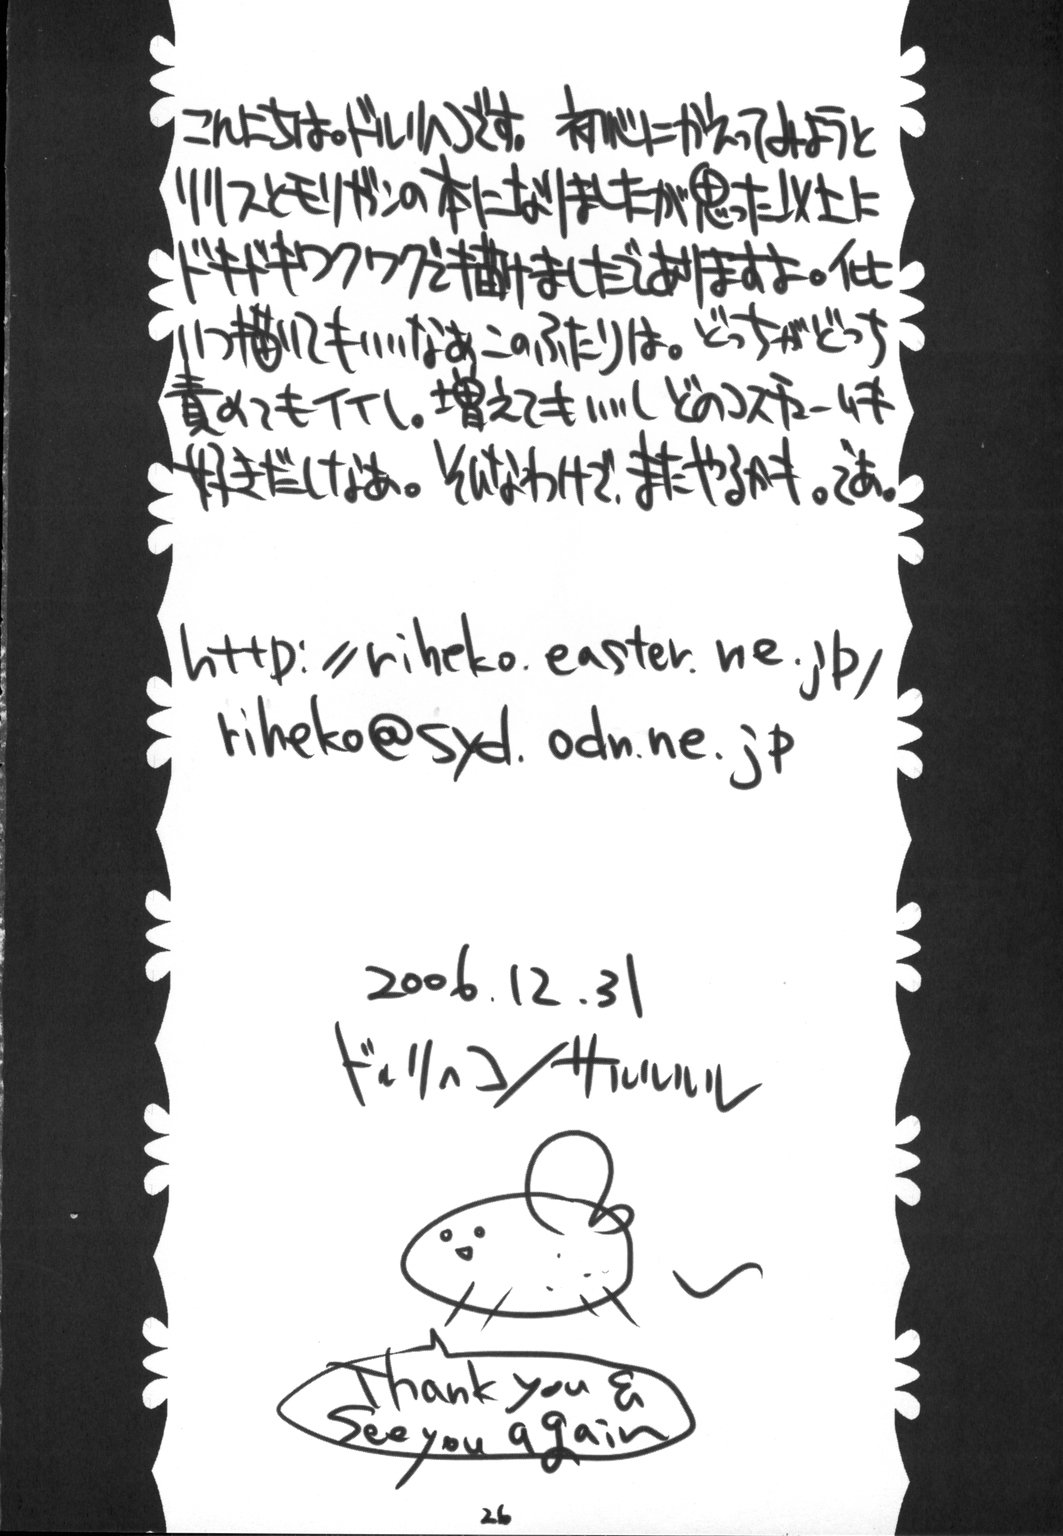 こんにちは。ドルリヘコです。 初心にかえってみようと
リリスとモリガンの本になりましたが思った以上に
ドキドキワクワクで描けましたでありますよ。
いつ描いてもいいなあこのふたりは。どっちがどっち
責めてもイイし。増えてもいいしどのコスチュームも
好きだしなあ。そんなわけで、またやるかも。であ。
http://riheko.easter.ne.jp/
riheko@syd.odn.ne.jp
2006.12.31
ドルリヘコ/サルルルル
Thank you &
See you again
26